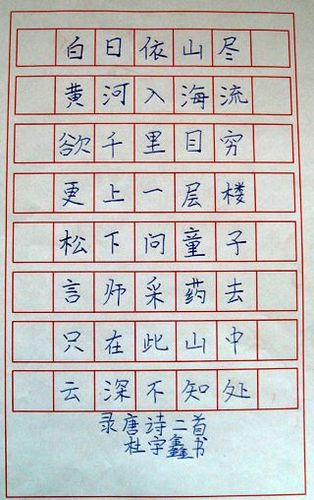 白日依山尽
黄河入海流
欲千里目穷
更上一层楼
松下问童子
言师采药去
只在此山中
云深不知处
录唐诗二首
杜宇鑫书